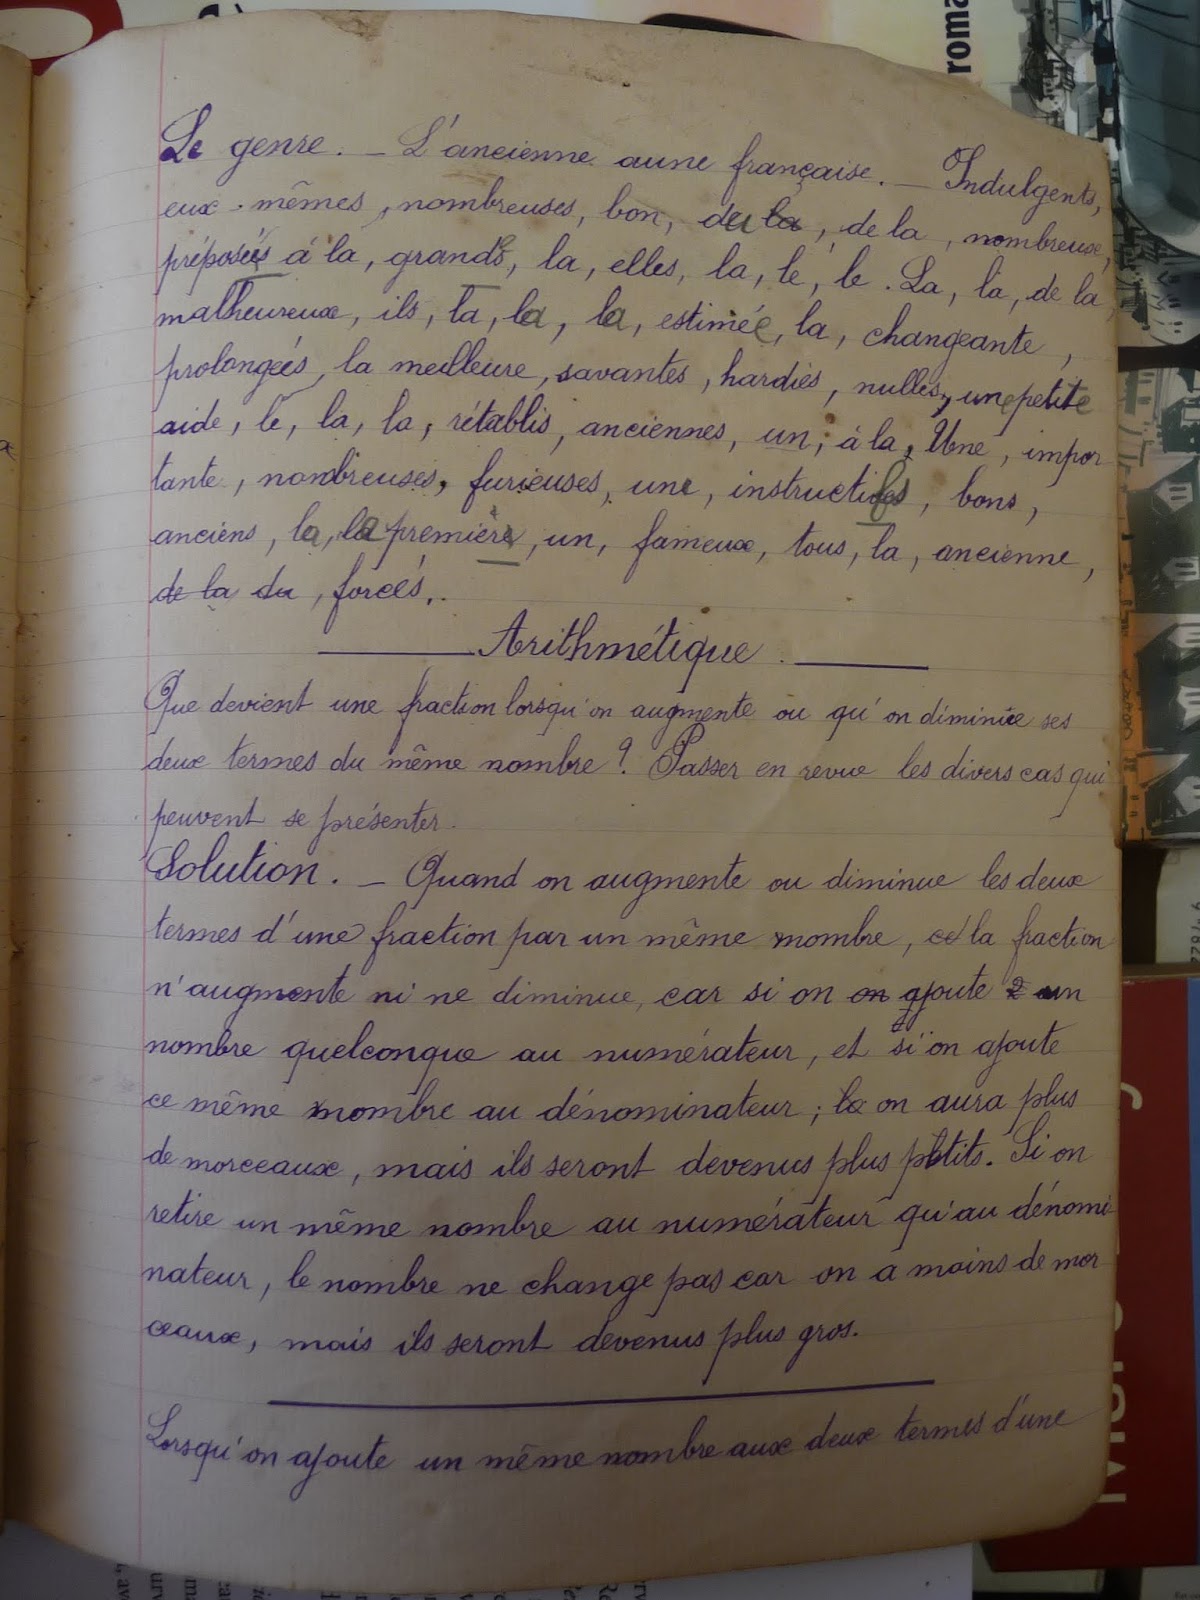 roma
Le genre. — L'ancienne aune française. — Indulgents,
eux-mêmes, nombreuses, bon, de la, nombreuse,
préposés à la, grands, la, elles, la, le, le. La, la, de la,
malheureux, ils, la, la, la, estimée, la, changeante,
prolongés, la meilleure, savantes, hardies, nulles, une petite
aide, le, la, la, rétablis, anciennes, un, à la, Une, impor
tante, nombreuses, furieuses, une, instructifs, bons,
anciens, la, la première, un, fameux, tous, la, ancienne,
de la du, forcés.
Arithmétique.
Que devient une fraction lorsqu'on augmente ou qu'on diminue ses
deux termes du même nombre? Passer en revue les divers cas qui
peuvent se présenter.
Solution. — Quand on augmente ou diminue les deux
termes d'une fraction par un même nombre, la fraction
n'augmente ni ne diminue, car si on on ajoute 2 un
nombre quelconque au numérateur, et si on ajoute
ce même nombre au dénominateur; on aura plus
de morceaux, mais ils seront devenus plus petits. Si on
retire un même nombre au numérateur qu'au dénomi
nateur, le nombre ne change pas car on a moins de mor
ceaux, mais ils seront devenus plus gros.
Lorsqu'on ajoute un même nombre aux deux termes d'une